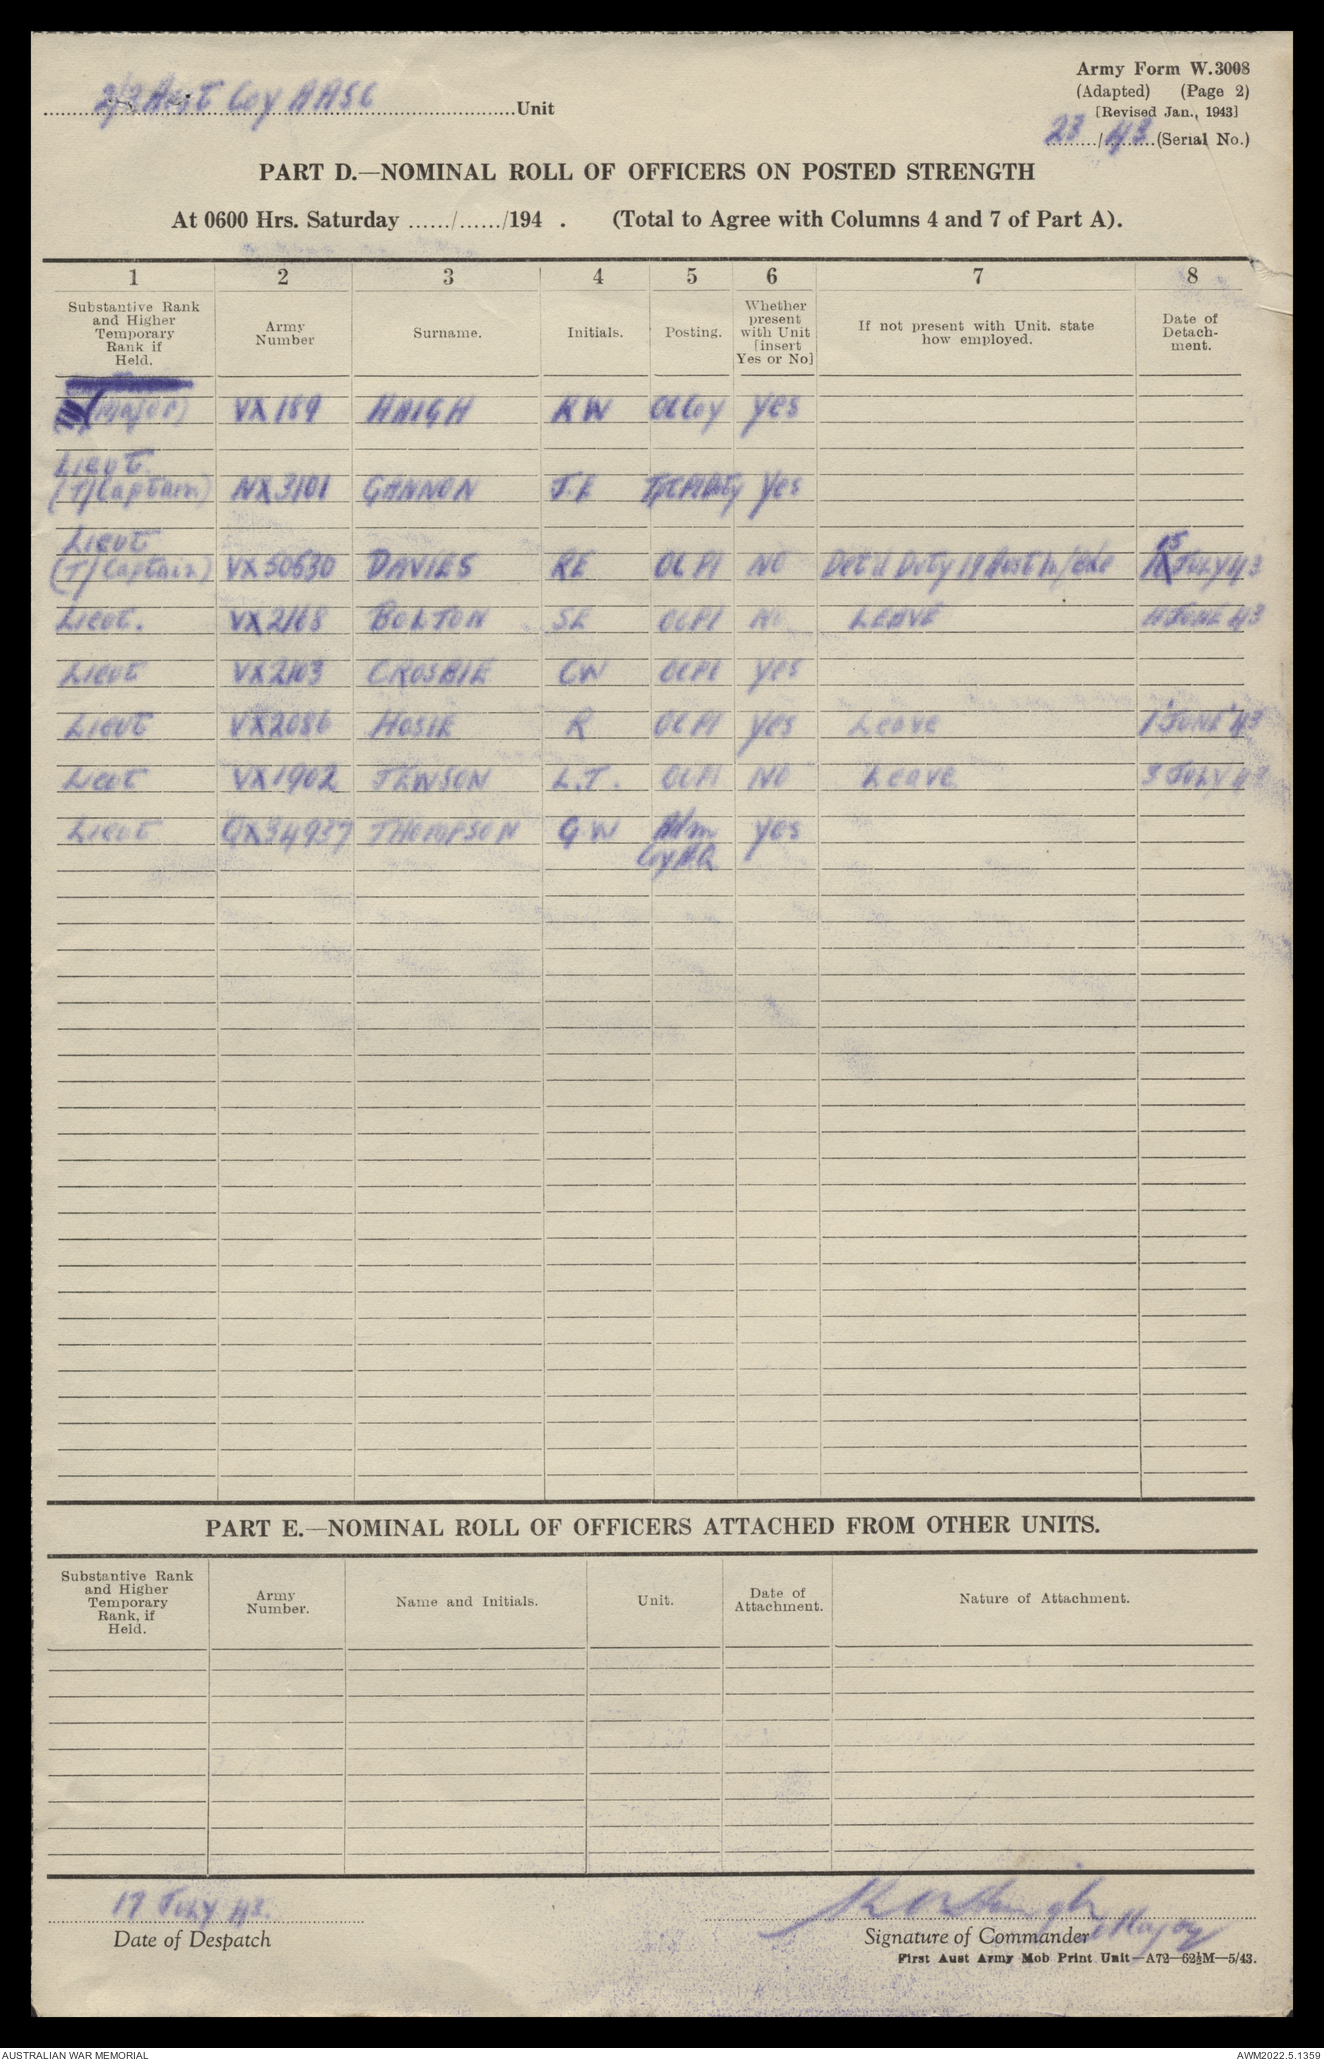 Army Form W.3008
(Adapted) (Page 2)
[Revised Jan., 1943]
2/3 Aust Coy AASC Unit
23/43 (Serial No.)
PART D.—NOMINAL ROLL OF OFFICERS ON POSTED STRENGTH
At 0600 Hrs. Saturday ....../....../194 . (Total to Agree with Columns 4 and 7 of Part A).
1 2 3 4 5 6 7 8
Substantive Rank and Higher Temporary Rank if Held.
Army Number
Surname.
Initials.
Posting.
Whether present with Unit [insert Yes or No]
If not present with Unit. state how employed.
Date of Detach-ment.
(Major) VX189 HAIGH KW OC Coy Yes
Lieut.
(T/Captain) NX3101 GANNON J.E Yes
Lieut
(T/Captain) VX50530 DAVIES RE OCPl NO Det'd Duty 15 JULY 43
Lieut. VX2168 BOLTON SE OCPl NO LEAVE 11 JUNE 43
Lieut VX2103 CROSBIE CW OCPl Yes
Lieut VX2086 HOSIE R OCPl Yes Leave 1 JUNE 43
Lieut VX1902 JEWSON L.T. OCPl NO Leave 3 July 43
Lieut QX34937 THOMPSON G.W Adm Yes
Coy HQ
PART E.—NOMINAL ROLL OF OFFICERS ATTACHED FROM OTHER UNITS.
Substantive Rank and Higher Temporary Rank, if Held.
Army Number.
Name and Initials.
Unit.
Date of Attachment.
Nature of Attachment.
17 July 43.
Date of Despatch
KW Haigh Major
Signature of Commander
First Aust Army Mob Print Unit—A72—62½M—5/43.
AUSTRALIAN WAR MEMORIAL
AWM2022.5.1359